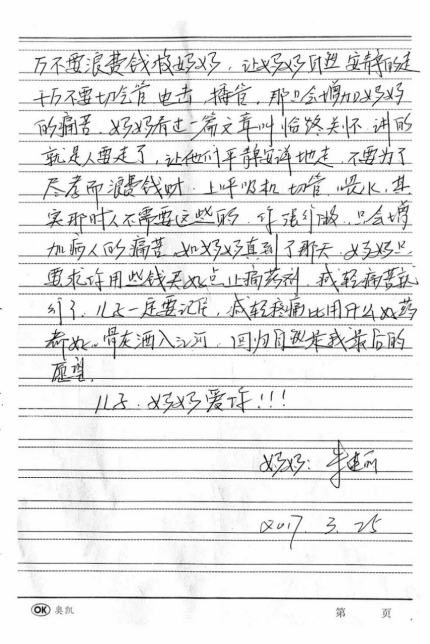 万不要浪费钱救妈妈，让妈妈自然安静的走
千万不要切气管 电击 插管，那只会增加妈妈
的痛苦，妈妈看过一篇文章叫临终关怀 讲的
就是人要走了，让他们平静安详地走，不要为了
尽孝而浪费钱财，上呼吸机 切管，喂水，其
实那时人不需要这些的，只会增
加病人的痛苦，如妈妈真到了那天，妈妈只
要求你用些钱买好点止痛药剂，减轻痛苦就
行了，儿子一定要记住，减轻疼痛比用什么好药
都好。骨灰洒入江河，回归自然是我最后的
愿望。
儿子：妈妈爱你！！！
妈妈：
2017. 3. 25
OK 奥凯
第 页